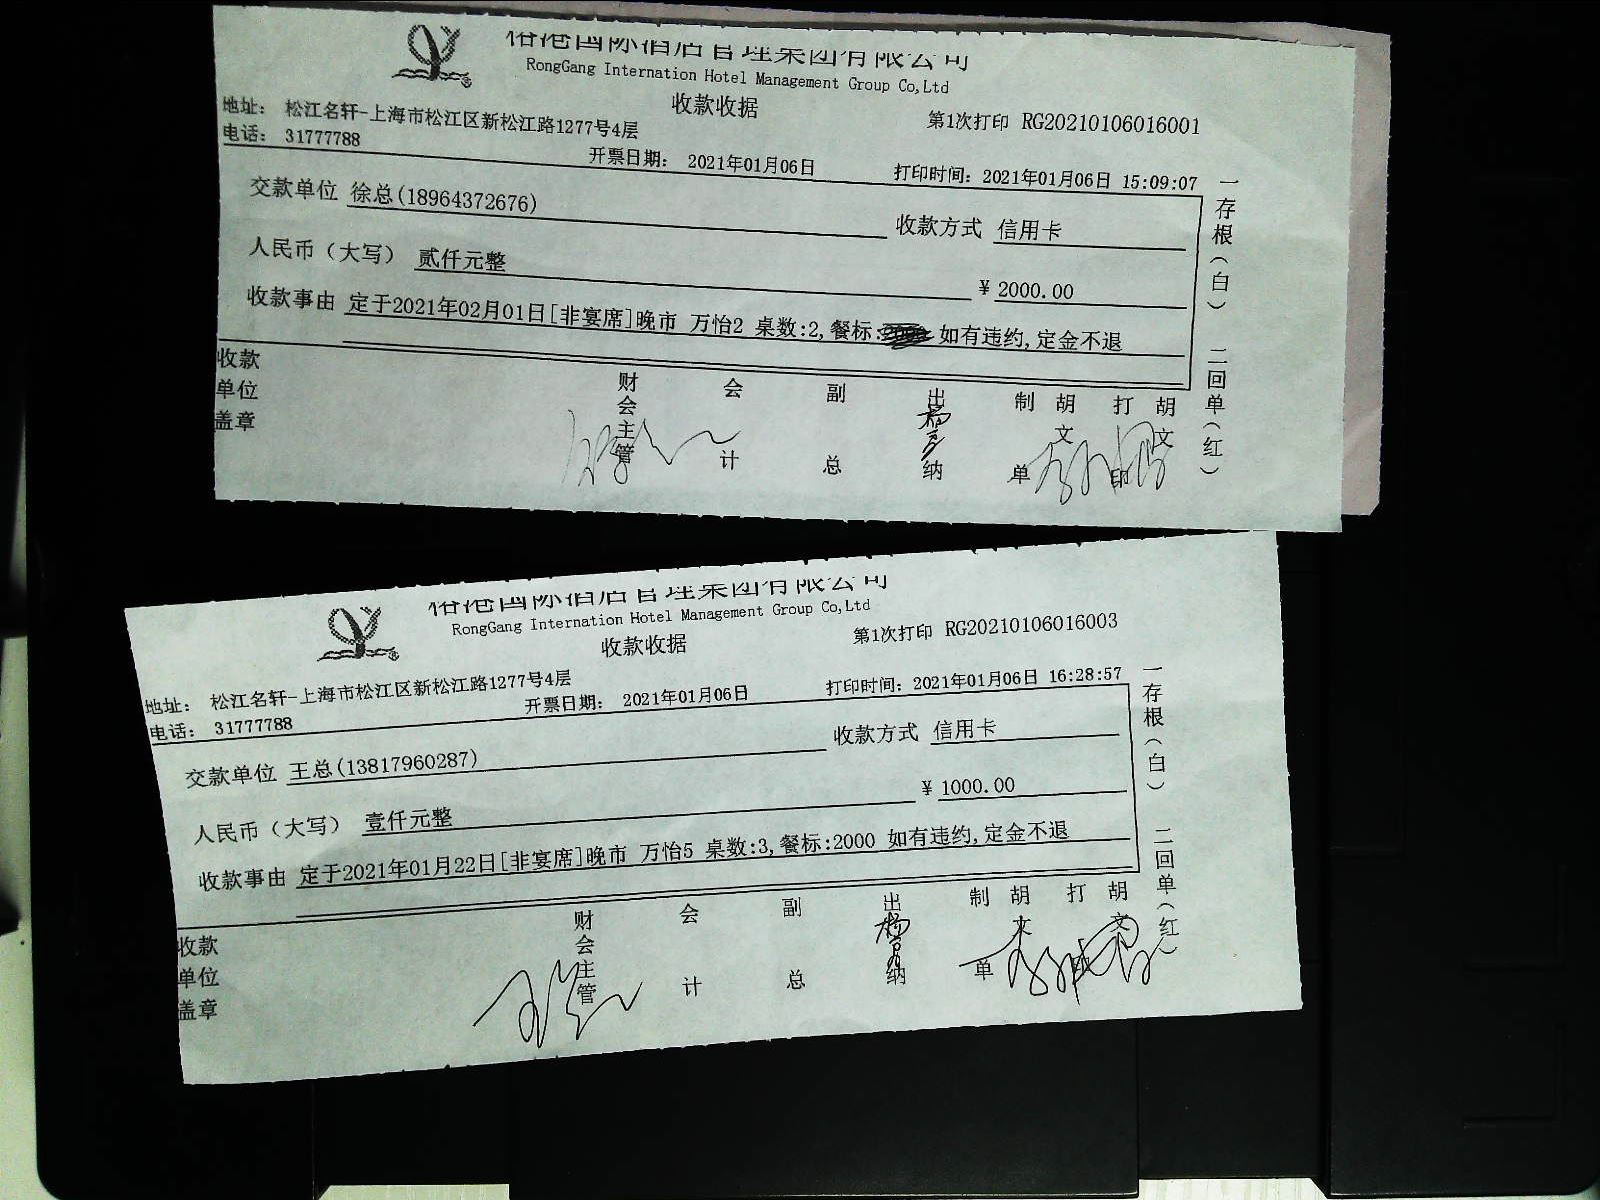 港国际酒店管理集团有限公司
RongGang Internation Hotel Management Group Co,Ltd
收款收据
第1次打印 RG20210106016001
地址: 松江名轩-上海市松江区新松江路1277号4层
电话: 31777788
开票日期: 2021年01月06日
打印时间: 2021年01月06日 15:09:07
交款单位 徐总(18964372676)
收款方式 信用卡
人民币（大写） 贰仟元整
¥ 2000.00
收款事由 定于2021年02月01日[非宴席]晚市 万怡2 桌数:2,餐标: 如有违约,定金不退
一存根（白） 二回单（红）
收款单位盖章
财会主管
会计
副总
出纳
制单 胡文
打印 胡文
港国际酒店管理集团有限公司
RongGang Internation Hotel Management Group Co,Ltd
收款收据
第1次打印 RG20210106016003
地址: 松江名轩-上海市松江区新松江路1277号4层
电话: 31777788
开票日期: 2021年01月06日
打印时间: 2021年01月06日 16:28:57
交款单位 王总(13817960287)
收款方式 信用卡
人民币（大写） 壹仟元整
¥ 1000.00
收款事由 定于2021年01月22日[非宴席]晚市 万怡5 桌数:3,餐标:2000 如有违约,定金不退
一存根（白） 二回单（红）
收款单位盖章
财会主管
会计
副总
出纳
制单 胡文
打印 胡文